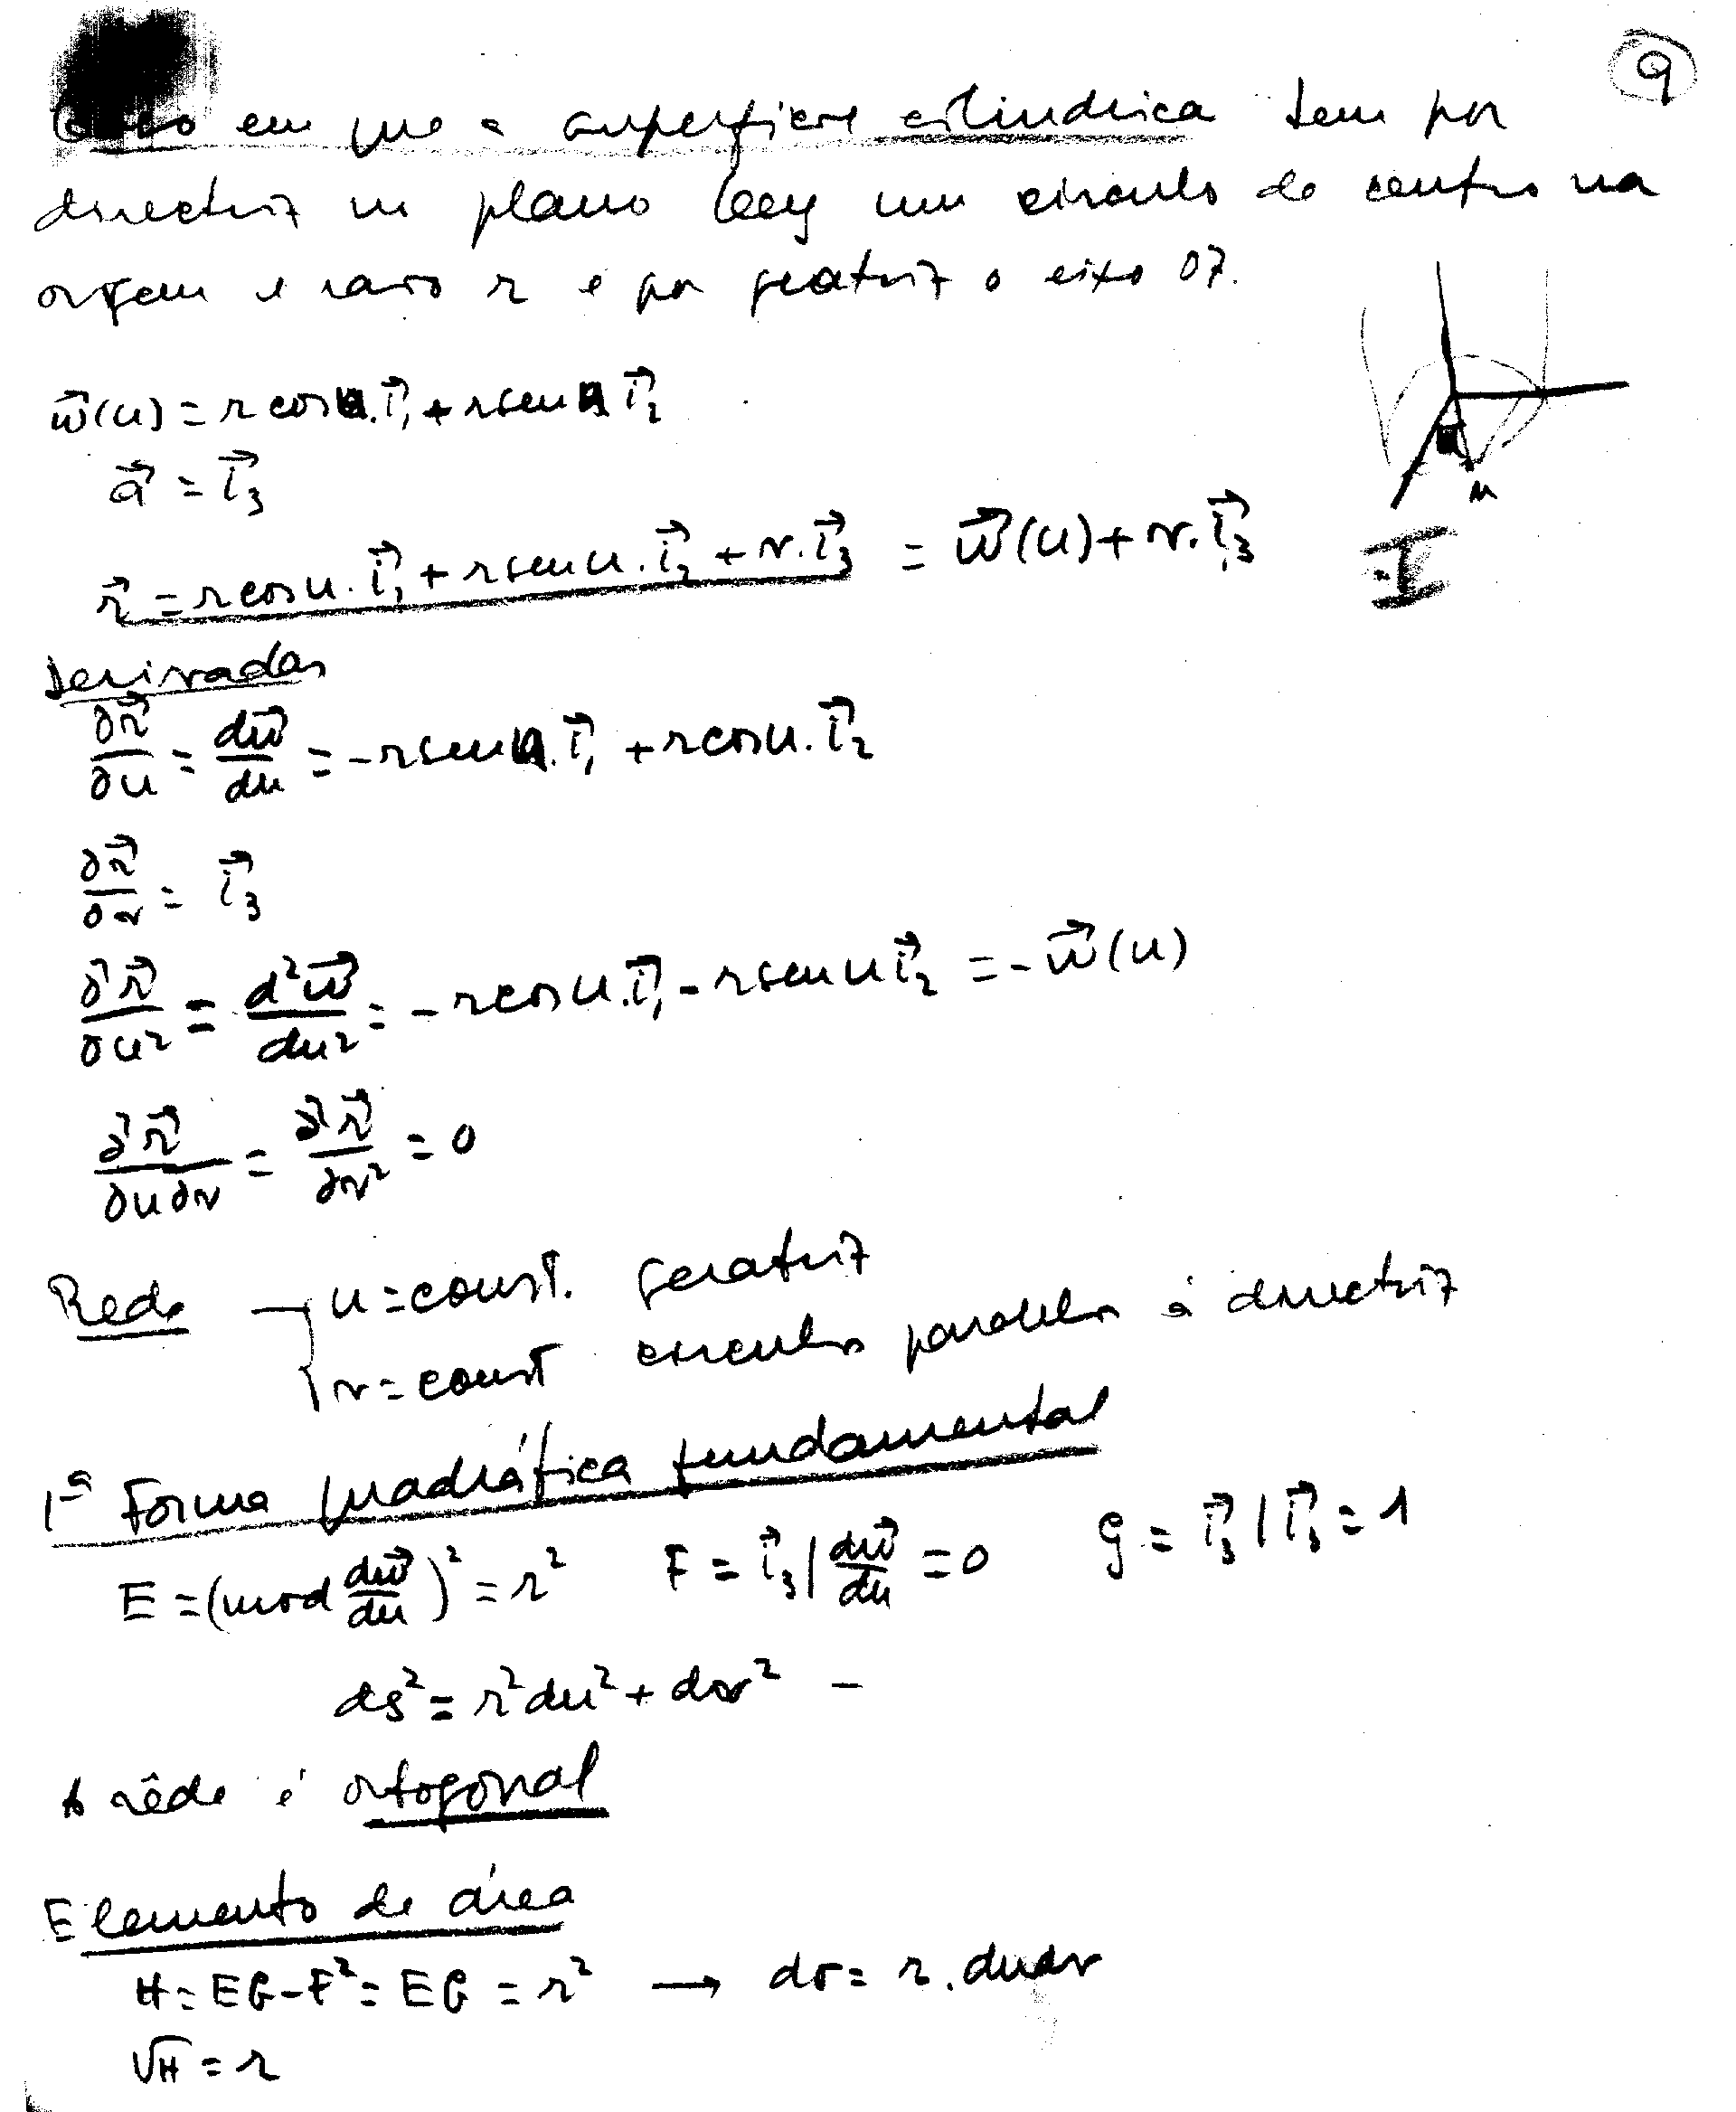 9
Caso em que a superfície cilíndrica tem por
directriz no plano Oxy um círculo de centro na
origem e raio r e por geatriz o eixo OZ.
w⃗(u) = r cos u . i⃗₁ + r sen u i⃗₂
a⃗ = i⃗₃
u
r⃗ = r cos u . i⃗₁ + r sen u . i⃗₂ + v . i⃗₃ = w⃗(u) + v . i⃗₃
I
Derivadas
∂r⃗/∂u = dw⃗/du = - r sen u . i⃗₁ + r cos u . i⃗₂
∂r⃗/∂v = i⃗₃
∂²r⃗/∂u² = d²w⃗/du² = - r cos u . i⃗₁ - r sen u i⃗₂ = - w⃗(u)
∂²r⃗/∂u∂v = ∂²r⃗/∂v² = 0
Rede → { u = const. geratriz
v = const círculos paralelos à directriz
1ª Forma quadrática fundamental
E = (mod dw⃗/du)² = r² F = i⃗₃ | dw⃗/du = 0 G = i⃗₃ | i⃗₃ = 1
ds² = r² du² + dv² -
A rêde é ortogonal
Elemento de área
H = EG - F² = EG = r² → dσ = r . du dv
√H = r